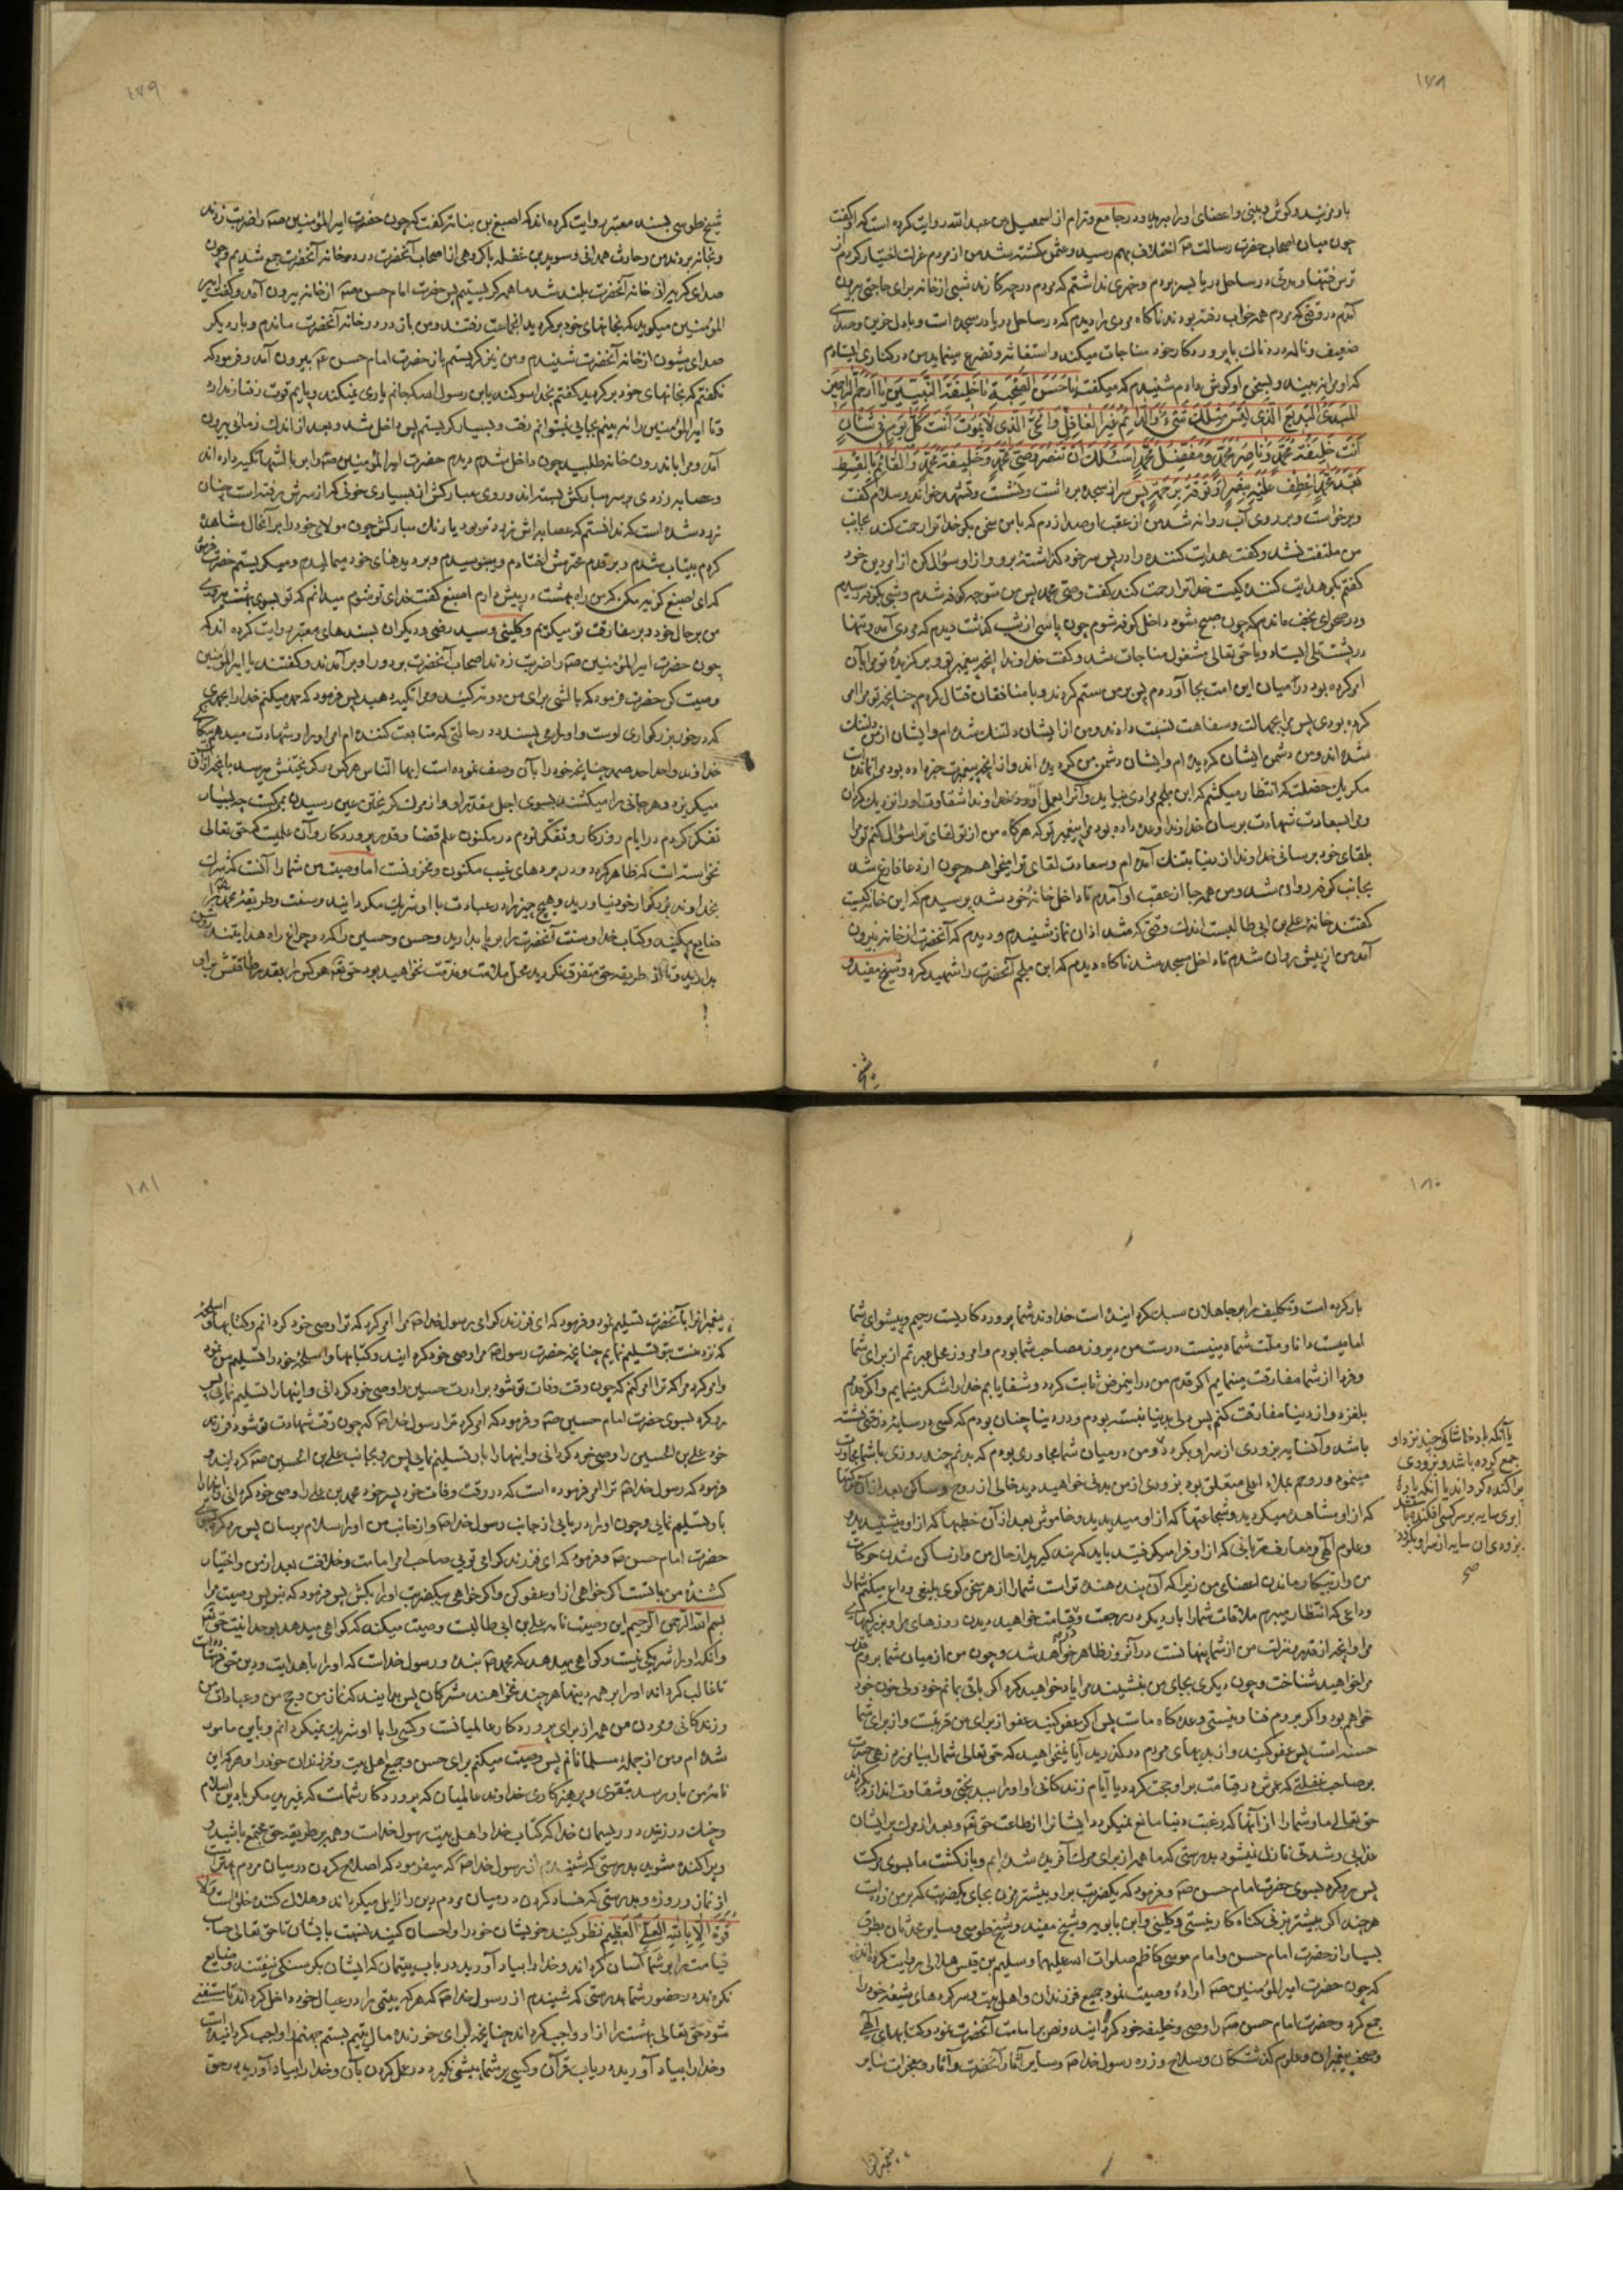 ۱۷۸
باو زدند و گوش و بینی و اعضای او را بریدند و در جامع وترام از اسمعیل بن عبدالله روایت کرده است که او گفت
چون میان اصحاب حضرت رسالت ص اختلاف بهم رسید و عثمن کشته شد من از مردم عزلت اختیار کردم از
ترس فتنها و مدتی در ساحل دریا بسر بردم و خبری نداشتم که مردم در چه کارند شبی از خانه برای حاجتی بیرون
آمدم در وقتی که مردم همه خواب رفته بودند ناگاه مردی را دیدم که در ساحل دریا در سجده است و با دل حزین و صدای
ضعیف و ناله دردناک با پروردگار خود مناجات میکند و استغاثه و تضرع مینماید من در کناری ایستادم
که او مرا نه بیند و بسخن او گوش دادم شنیدم که میگفت یا حَسَنَ الصُّحْبَةِ یا خَلِیفَةَ النَّبِیِّینَ یا اَرْحَمَ الرّاحِمِینَ
المُبْدِئُ البَدِیعُ الَّذی لَیْسَ مِثْلَکَ شَیْءٌ وَالدّائِمُ غَیْرُ الغافِلِ وَالحَیُّ الَّذی لا یَمُوتُ اَنْتَ کُلَّ یَوْمٍ فی شَانٍ
اَنْتَ خَلِیفَةُ مُحَمَّدٍ وَناصِرُ مُحَمَّدٍ وَمُفَضِّلُ مُحَمَّدٍ اَسْئَلُکَ اَنْ تَنْصُرَ وَصِیَّ مُحَمَّدٍ وَخَلِیفَةَ مُحَمَّدٍ وَالقائِمَ بِالقِسْطِ
بَعْدَ مُحَمَّدٍ اِعْطِفْ عَلَیْهِ بِنَصْرٍ اَوْ تَوَفَّهُ بِرَحْمَةٍ پس سر از سجده برداشت و نشست و تشهد خواند و سلام گفت
و برخواست و بر روی آب روانه شد من از عقب او صدا زدم که با من سخن بگو خدا ترا رحمت کند بجانب
من ملتفت نشد و گفت هدایت کننده را در پس سر خود گذاشتهٔ برو و از او سؤال کن از امر دین خود
گفتم بگو هدایت کننده کیست خدا ترا رحمت کند گفت وصی محمد پس من متوجه کوفه شدم و شبی بکوفه رسیدم
و در صحرای نجف ماندم که چون صبح شود داخل کوفه شوم چون پاسی از شب گذشت دیدم که مردی آمد و تنها
در پشت تلی ایستاد و با حق تعالی مشغول مناجات شد و گفت خداوندا آنچه پیغمبر تو و برگزیدهٔ تو مرا بآن
امر کرده بود در میان این امت بجا آوردم پس بر من ستم کردند و با منافقان قتال کردم چنانچه تو مرا امر
کرده بودی پس مرا بجهالت و سفاهت نسبت دادند و من از ایشان دلتنگ شده ام و ایشان از من دلتنگ
شده اند و من دشمن ایشان گردیده ام و ایشان دشمن من گردیده اند و از آنچه پیغمبرت خبر داده بود مرا نمانده است
مگر یک خصلت که انتظار میکشم که ابن ملجم مرادی بیاید و آنرا بعمل آورد خداوندا شقاوت او را نزدیک گردان
و مرا بسعادت شهادت برسان خداوندا وعده داده بود مرا پیغمبر تو که هرگاه من از تو لقای ترا سؤال کنم تو مرا
بلقای خود برسانی خداوندا از دنیا بتنگ آمده ام و سعادت لقای ترا میخواهم چون از دعا فارغ شد
بجانب کوفه روان شد و من همه جا از عقب او آمدم تا داخل خانهٔ خود شد پرسیدم که این خانه کیست
گفتند خانه علی بن ابی طالبست اندک وقتی که شد اذان نماز شنیدم و دیدم که آنحضرت از خانه بیرون
آمد من از پیش روان شدم تا داخل مسجد شد ناگاه دیدم که ابن ملجم آنحضرت را شهید کرد و شیخ مفید و
شیخ
۱۷۹
شیخ طوسی بسند معتبر روایت کرده اند که اصبغ بن نباته گفت که چون حضرت امیرالمؤمنین ص را ضربت زدند
و بخانه بردند من و حارث همدانی و سوید بن غفله با گروهی از اصحاب آنحضرت در در خانه آنحضرت جمع شدیم و چون
صدای گریه از خانه آنحضرت بلند شد ما همه گریستیم پس حضرت امام حسن ص از خانه بیرون آمد و گفت امیر
المؤمنین میگوید که بخانهای خود برگردید آنجماعت رفتند و من باز در در خانه آنحضرت ماندم و بار دیگر
صدای شیون از خانه آنحضرت شنیدم و من نیز گریستم باز حضرت امام حسن ع بیرون آمد و فرمود که
نگفتم که بخانهای خود برگردید گفتم بخدا سوگند یابن رسول الله که جانم یاری نمیکند و پایم قوت رفتار ندارد
و تا امیرالمؤمنین را نه بینم بجایی نمیتوانم رفت و بسیار گریستم پس داخل شد و بعد از اندک زمانی بیرون
آمد و مرا باندرون خانه طلبید چون داخل شدم دیدم حضرت امیرالمؤمنین ص را بر بالشها تکیه داده اند
و عصابه زردی بر سر مبارکش بسته اند و روی مبارکش از بسیاری خونی که از سرش رفته است چنان
زرد شده است که ندانستم که عصابه اش زردتر بود یا رنک مبارکش چون مولای خود را بر آنحال مشاهده
کردم بیتاب شدم و بر قدم محترمش افتادم و میبوسیدم و بر دیدهای خود میمالیدم و میگریستم حضرت فرمود
که ای اصبغ گریه مکن که من راه بهشت در پیش دارم اصبغ گفت فدای تو شوم میدانم که تو بسوی بهشت میروی
من بر حال خود و بر مفارقت تو میگریم و کلینی و سید رضی و دیگران بسندهای معتبر روایت کرده اند که
چون حضرت امیرالمؤمنین ص را ضربت زدند اصحاب آنحضرت بر دور او بر آمدند و گفتند یا امیرالمؤمنین
وصیت کن حضرت فرمود که بالشی برای من دوته کنید و مرا تکیه دهید پس فرمود که حمد میکنم خدا را بحمدی
که در خور بزرگواری اوست و او را می پسندد در حالتی که متابعت کننده ام امر او را و شهادت میدهم بیکتایی
خداوند واحد احد صمد چنانچه خود را بآن وصف نموده است ایها الناس هر کس در گریختنش میرسد بآنچه از آن
میگریزد و هر جانی را میکشند بسوی اجل مقدر او و از مرگ گریختن عین رسیدن بمرگست چه بسیار
تفکر کردم در ایام روزگار و تفکر نمودم در مکنون علم قضا و قدر پروردگار و آن علمیست که حق تعالی
نخواسته است که ظاهر گردد و در پردهای غیب مکنون و مخزونست اما وصیت من شما را آنست که شرک
بخداوند بزرگوار خود نیاورید و هیچ چیز را در عبادت با او شریک مگردانید و سنت و طریقهٔ محمد ص را
ضایع مکنید و کتاب خدا و سنت آنحضرت را بر پا بدارید و حسن و حسین را که دو چراغ راه هدایتند روشن
بدارید و تا از طریقه حق متفرق نگردید محل ملامت و مذمت نخواهید بود حق تعه هر کس را بقدر طاقتش برای
۱۸۰
بار کرده است و تکلیف را بر جاهلان سبک گردانیده است خداوند شما پروردگاریست رحیم و پیشوای شما
امامیست دانا و ملت شما دینیست درست من دیروز مصاحب شما بودم و امروز محل عبرتم از برای شما
و فردا از شما مفارقت مینمایم اگر قدم من در اینمرض ثابت گردد و شفا یابم خدا را شکر مینمایم و اگر قدم
بلغزد و از دنیا مفارقت کنم پس دلی بدنیا نبسته بودم و در دنیا چنان بودم که کسی در سایه درختی نشسته
باشد و آفتابه بزودی از سر او بگردد و من در میان شما مجاوری بودم که بدنم چند روزی با شما مجاورت
مینمود و روحم بملاء اعلی متعلق بود بزودی از من بدنی خواهید دید خالی از روح و ساکن بعد از آن حرکتها
که از او مشاهده میکردید و شجاعتها که از او میدیدید و خاموش بعد از آن خطبها که از او میشنیدید
و علوم الهی و معارف ربانی که از او فرا میگرفتید باید که پند گیرید از حال من و از ساکن شدن حرکات
من و از بیکار ماندن اعضای من زیرا که آن پند دهنده تر است شما را از هر سخن گوی بلیغی وداع میکنم شما را
وداعی که انتظار میبرم ملاقات شما را بار دیگر در رجعت و قیامت خواهید دیدن روزهای مرا و بزرگیهای
مرا و آنچه از قدر و منزلت من از شما پنهانست در آنروز ظاهر خواهد شد و چون من از میان شما بروم قدر
مرا خواهید شناخت و چون دیگری بجای من بنشیند مرا یاد خواهید کرد اگر باقی بمانم خود ولی خون خود
خواهم بود و اگر بروم فنا و نیستی وعده گاه ماست پس اگر عفو کنید عفو از برای من قربتست و از برای شما
حسنه است پس عفو کنید و از بدیهای مردم در گذرید آیا نمیخواهید که حق تعالی شما را بیامرزد زهی حسرت
بر صاحب غفلتی که عمرش در قیامت بر او حجت گردد یا ایام زندگانی او او را ببدبختی و شقاوت اندازد
حق تعالی ما و شما را از آنها که رغبت دنیا مانع نمیگردد ایشانرا از طاعت حق تعه و بعد از مرگ بر ایشان
عذابی و شدتی نازل نمیشود بدرستی که ما همه از برای مرگ آفریده شده ایم و بازگشت ما بسوی مرگست
پس رو کرد بسوی حضرت امام حسن ص و فرمود که یکضربت بر او بیشتر مزن بجای یکضربت که بر من زده است
هر چند اگر بیشتر بزنی گناه کار نیستی و کلینی و ابن بابویه و شیخ مفید و شیخ طوسی و سایر محدثان بطرق
بسیار از حضرت امام حسن و امام موسی کاظم صلوات الله علیهما و سلیم بن قیس هلالی روایت کرده اند
که چون حضرت امیرالمؤمنین ص ارادهٔ وصیت نمود جمیع فرزندان و اهل بیت و سرکرده های شیعهٔ خود را
جمع کرد و حضرت امام حسن ص را وصی و خلیفهٔ خود گردانید و نص بامامت آنحضرت نمود و کتابهای الهی
و صحف پیغمبران و علوم گذشتگان و سلاح و زره رسول خدا ص و سایر آثار آنحضرت و آثار و معجزات سایر
یا آنکه باد خاشاکی چند نزد او
جمع کرده باشد و بزودی
پراکنده گرداند یا آنکه پارهٔ
ابری سایه بر سر کسی افکند و
بزودی آن سایه از سر او بگردد
صح
پیغمبرانرا
۱۸۱
پیغمبرانرا بآنحضرت تسلیم نمود و فرمود که ای فرزند گرامی رسول خدا ص مرا امر کرد که ترا وصی خود گردانم و کتابها و اسلحه
که نزد منست بتو تسلیم نمایم چنانچه حضرت رسول ص مرا وصی خود گردانید و کتابها و اسلحهٔ خود را تسلیم من نمود
و امر کرد مرا که ترا امر کنم که چون وقت وفات تو شود برادرت حسین را وصی خود گردانی و اینها را تسلیم نمایی پس
رو کرد بسوی حضرت امام حسین ص و فرمود که امر کرد ترا رسول خدا ص که چون وقت شهادت تو شود فرزند
خود علی بن الحسین را وصی خود گردانی و اینها را باو تسلیم نمایی پس رو بجانب علی بن الحسین ص گردانید و
فرمود که رسول خدا ص ترا امر فرموده است که در وقت وفات خود پسر خود محمد بن علی را وصی خود گردانی و اینها را
باو تسلیم نمایی و چون او را دریابی از جانب رسول خدا ص و از جانب من او را سلام برسان پس رو کرد بسوی
حضرت امام حسن ص و فرمود که ای فرزند گرامی تویی صاحب امر امامت و خلافت بعد از من و اختیار
کشندهٔ من با تست اگر خواهی از او عفو کن و اگر خواهی بیکضربت او را بکش پس فرمود که بنویس وصیت مرا
بسم الله الرحمن الرحیم این وصیت نامه علی بن ابی طالبست وصیت میکند که گواهی میدهد بوحدانیت حق تعه
و آنکه او را شریکی نیست و گواهی میدهد که محمد ص بنده و رسول خداست که او را با هدایت و دین حق فرستاده است
تا غالب گرداند او را بر همه دینها هر چند نخواهند مشرکان پس بدانید که نماز من و حج من و عبادات من
و زندگانی و مردن من همه از برای پروردگار عالمیانست و کسی را با او شریک نمیگردانم و باین مامور
شده ام و من از جملهٔ مسلمانانم پس وصیت میکنم برای حسن و جمیع اهل بیت و فرزندان خود را و هر که این
نامهٔ من باو برسد بتقوی و پرهیزکاری خداوند عالمیان که پروردگار شماست که نمیرید مگر با دین اسلام
و چنگ در زنید در ریسمان خدا که کتاب خدا و اهل بیت رسول خداست و همه بر طریقه حق مجتمع باشید و
پراکنده مشوید بدرستی که شنیدم از رسول خدا ص که میفرمود که اصلاح کردن در میان مردم بهتر است
از نماز و روزه و بدرستی که فساد کردن در میان مردم دین را زایل میگرداند و هلاک کننده خلق است ولا
قُوَّةَ اِلّا بِاللهِ العَلِیِّ العَظِیمِ نظر کنید خویشان خود را و احسان کنید نسبت بایشان تا حق تعالی حساب
قیامت را بر شما آسان گرداند و خدا را بیاد آورید در باب یتیمان که ایشان بگرسنگی نیفتند و ضایع
نگردند در حضور شما بدرستی که شنیدم از رسول خدا ص که هر که یتیمی را در عیال خود داخل گرداند تا مستغنی
شود حق تعالی بهشت را از او واجب گرداند چنانچه برای خورنده مال یتیم بستم جهنم را واجب گردانیده است
و خدا را بیاد آورید در باب قرآن و کسی بر شما پیشی نگیرد در عمل کردن بآن و خدا را بیاد آورید در حق